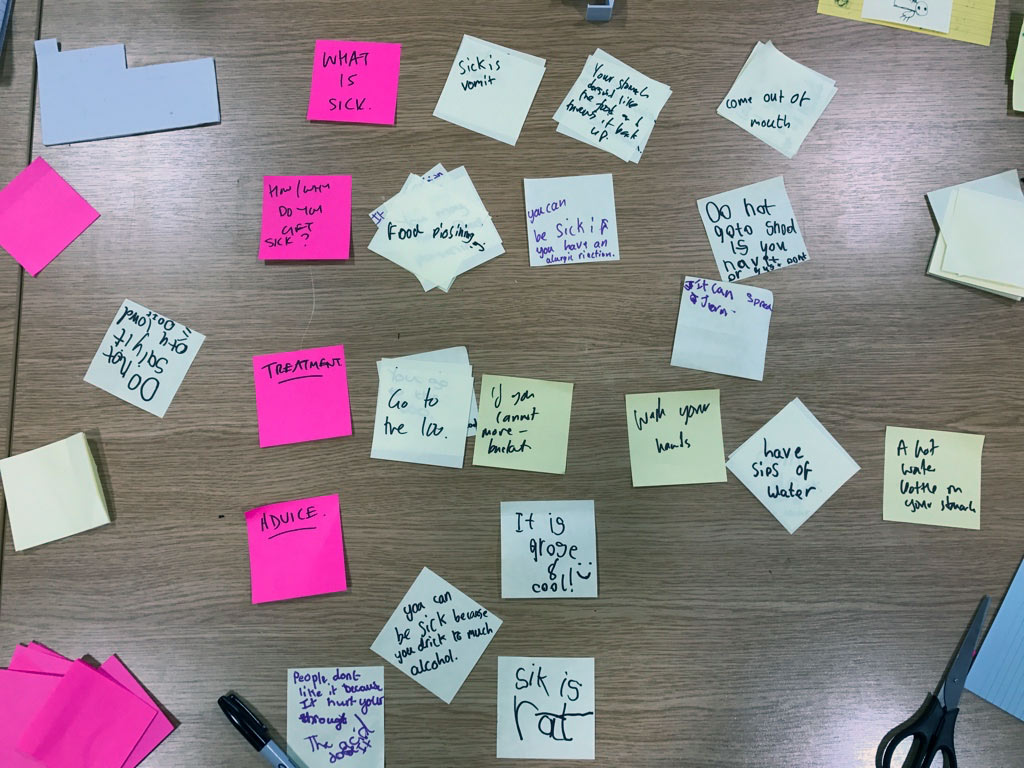 WHAT
IS
SICK.
Sick is
vomit
Your stomach
like
the food and
throws it back
up.
come out of
mouth
HOW/WHY
DO YOU
GET
SICK?
It
Food piosining
you can
be Sick if
you have an
alurgic riection.
Do not
go to
is you
hav it
or
it can spread
Do not
say it
TREATMENT
Go to
the loo.
if you
cannot
move -
bucket
Wash your
hands
have
sips of
water
A hot
wate
bottle on
your stomach
ADVICE.
It is
grose
&
cool!
you can
be sick because
you drick to much
alcohol.
People dont
like it because
It hurt your
through
The acid
sik is
rat